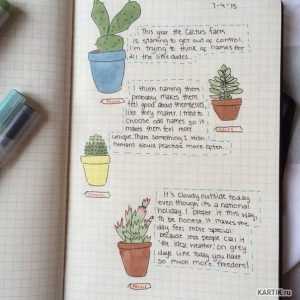 7-4-'15
This year the Cactus farm
is starting to get out of control.
I'm trying to think of names for
all the little dudes.
I think naming them
probably makes them
feel good about themselves,
like they matter. I tried to
choose odd names so it
makes them feel more
unique. Than something a
human would posses more often.
It's cloudy outside today
even though it's a national
holiday. I prefer it this way
to be honest. It makes the
day feel more special
because most people call it
"the ideal weather" on grey
days like today you have
so much more freedom!
KARTINKI